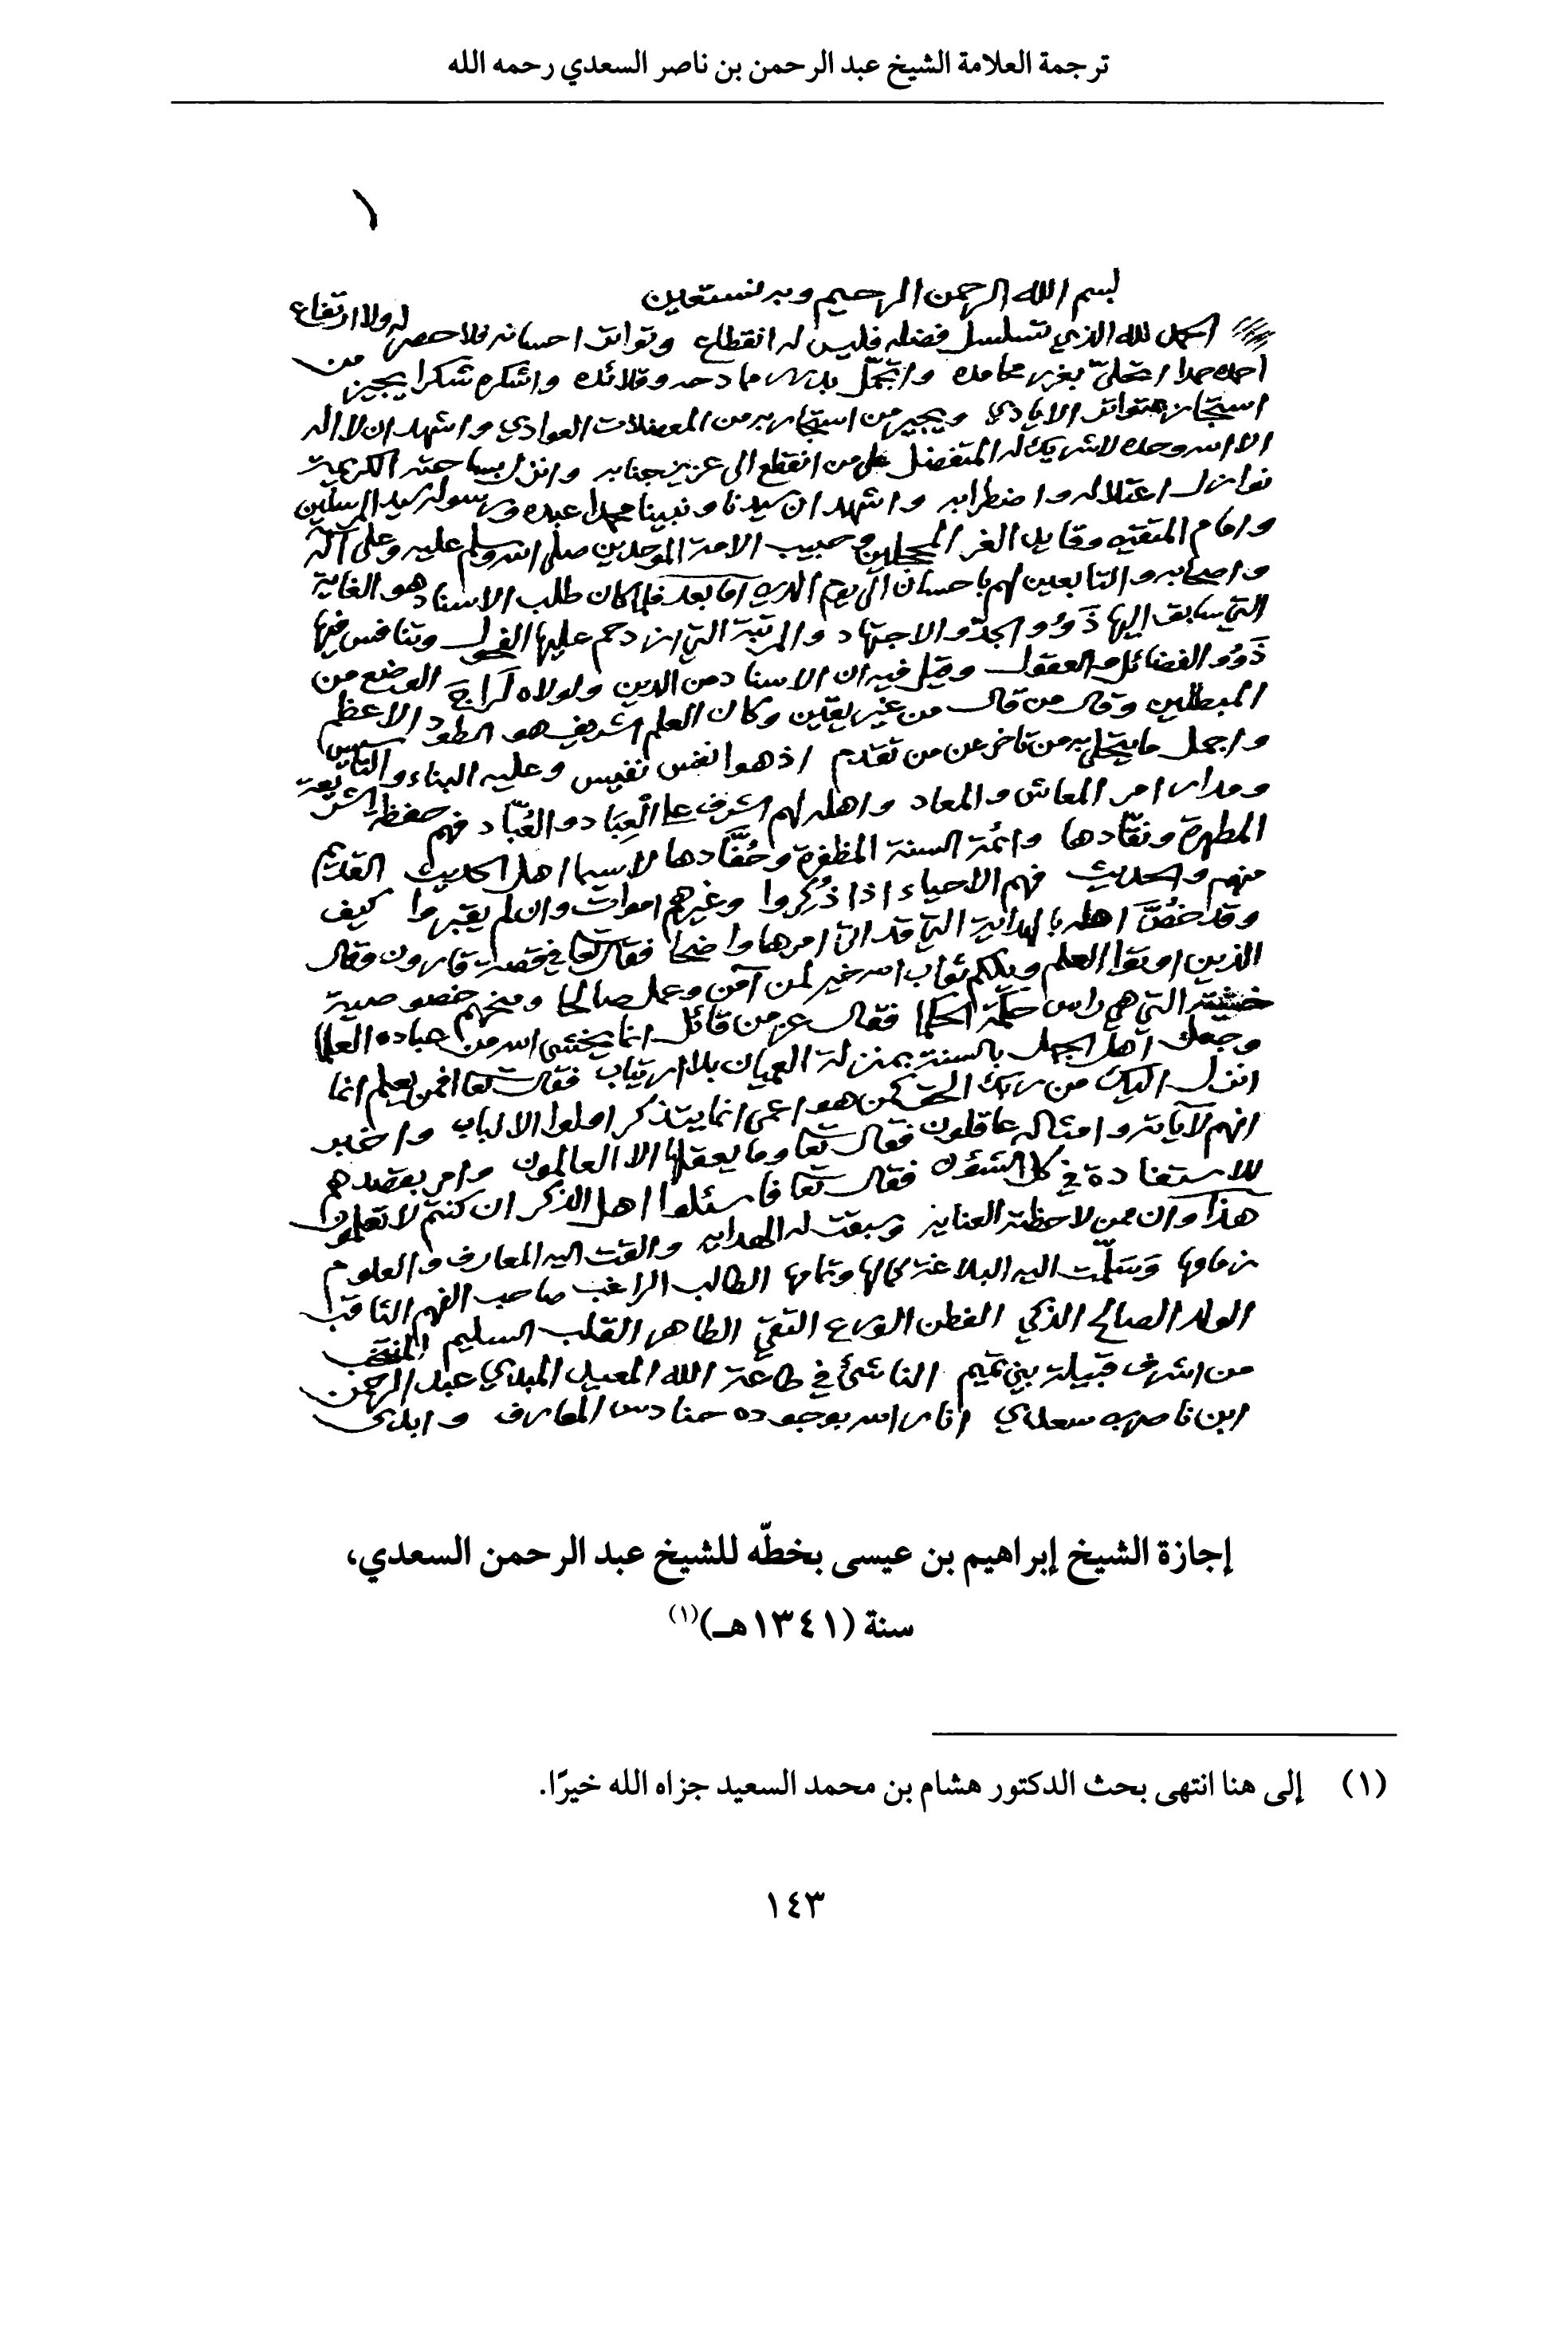 ترجمة العلامة الشيخ عبد الرحمن بن ناصر السعدي رحمه الله
١
بسم الله الرحمن الرحيم وبه نستعين
الحمد لله الذي تسلسل فضله فليس له انقطاع وتواتر احسانه فلا حصر له ولا ارتفاع
احمده حمدا اتحلى بغرر محامده واتجمل بدرر مادحه وقلائده واشكره شكرا يجيز من
استجازه متواتر الايادي ويجير من استجار به من المعضلات العوادي واشهد ان لا اله
الا الله وحده لا شريك له المتفضل على من انقطع الى عزيز جنابه وانزل بساحته الكريمة
نوازل اعتلاله واضطرابه واشهد ان سيدنا ونبينا محمدا عبده ورسوله سيد المرسلين
وامام المتقين وقايد الغر المحجلين وحبيب الامة الموحدين صلى الله وسلم عليه وعلى آله
واصحابه والتابعين لهم باحسان الى يوم الدين اما بعد فلما كان طلب الاسناد هو الغاية
التي سابق اليها ذَوُو الجدّ والاجتهاد والمرتبة التي ازدحم عليها الفحول وتنافس فيها
ذَوُو الفضائل والعقول وقيل فيه ان الاسناد من الدين ولولاه لراج الوضع من
المبطلين وقال من قال من غير يقين وكان العلم الشريف هو الطود الاعظم
واجمل ما يتحلى به من تاخر عن من تقدم اذ هو انفس نفيس وعليه البناء والتاسيس
ومدار امر المعاش والمعاد واهله لهم الشرف على الْعِبَاد والعُبّاد فهم حفظة الشريعة
المطهرة ونقّادها وائمة السنة المظفرة وحُفّادها لاسيما اهل الحديث القديم
منهم والحديث فهم الاحياء اذا ذُكروا وغيرهم اموات وان لم يقبروا كيف
وقد خصَّ اهله بالهداية التي قد اتى امرها واضحا فقال تعا في قصة قارون وقال
الذين اوتوا العلم ويلكم ثواب الله خير لمن آمن وعمل صالحا ومنحهم خصوصية
خشيته التي هي راس حكمة الحكما فقال عز من قائل انما يخشى الله من عباده العلما
وجعل اهل الجهل بالسنة بمنزلة العميان بلا ارتياب فقال تعا افمن يعلم انما
انزل اليك من ربك الحق كمن هو اعمى انما يتذكر اولوا الالباب واخبر
انهم لآياته وامثاله عاقلون فقال تعا وما يعقلها الا العالمون وامر بقصدهم
للاستفادة في كل الشؤن فقال تعا فاسئلوا اهل الذكر ان كنتم لا تعلمون
هذا وان ممن لاحظته العناية وسبقت له الهداية والقت اليه المعارف والعلوم
زمامها وَسَلَّمت اليه البلاغة كمالها وتمامها الطالب الراغب صاحب الفهم الثاقب
الولد الصالح الذكي الفطن الورع التقي الطاهر القلب السليم المنتخب
من اشرف قبيلة بني تميم الناشئ في طاعة الله المعيد المبدي عبد الرحمن
ابن ناصر بن سعدي انار الله بوجوده حنادس المعارف وابدى
إجازة الشيخ إبراهيم بن عيسى بخطّه للشيخ عبد الرحمن السعدي،
سنة (١٣٤١هـ)(١)
(١) إلى هنا انتهى بحث الدكتور هشام بن محمد السعيد جزاه الله خيرًا.
١٤٣